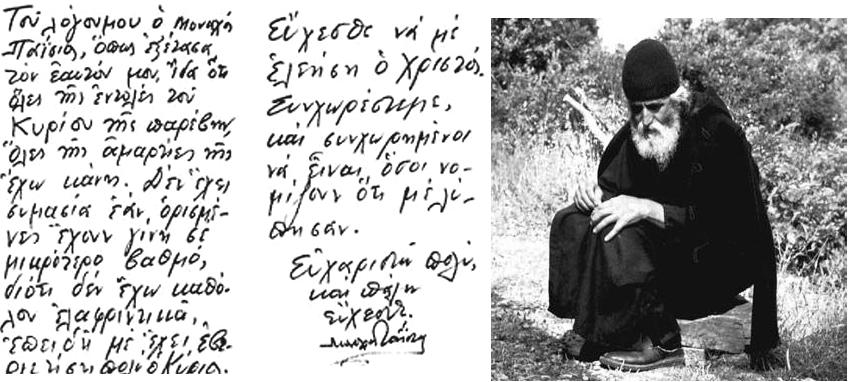 Τοῦ λόγου μου ὁ Μοναχὸς
Παΐσιος, ὅπως ἐξέτασα
τὸν ἑαυτόν μου, εἶδα ὅτι
ὅλες τῆς ἐντολές τοῦ
Κυρίου τῆς παρέβην,
ὅλες τῆς ἁμαρτίες τῆς
ἔχω κάνη. Δὲν ἔχει
σημασία ἐάν ὁρισμέ-
νες ἔχουν γίνη σέ
μικρότερο βαθμό,
διότι δέν ἔχω καθό-
λου ἐλαφρυντικά,
ἐπειδή μέ ἔχει εὐερ-
γετήση πολύ ὁ Κύριος.
Εὔχεσθε νά μέ
ἐλεήση ὁ Χριστός.
Συγχωρέστε με,
καί συγχωρημένοι
νά εἶναι, ὅσοι νο-
μίζουν ὅτι μέ λύ-
πησαν.
Εὐχαριστῶ πολύ,
καί πάλη
εὔχεσθε.
Μοναχός Παΐσιος